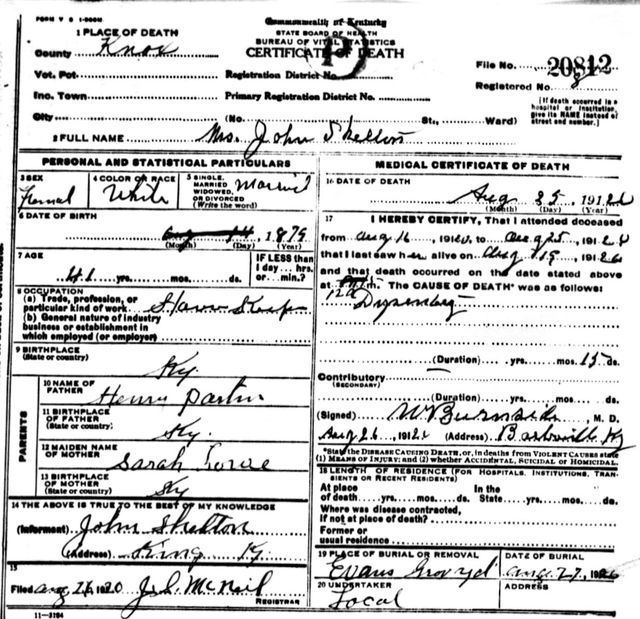 FORM V S 1-500M
Commonwealth of Kentucky
STATE BOARD OF HEALTH
BUREAU OF VITAL STATISTICS
CERTIFICATE OF DEATH
1 PLACE OF DEATH
County Knox
Vot. Pct.
Inc. Town
City
Registration District No.
Primary Registration District No.
(No. St., Ward)
File No. 20812
Registered No. 8
[If death occurred in a hospital or institution, give its NAME instead of street and number.]
2 FULL NAME Mrs. John Shelton
PERSONAL AND STATISTICAL PARTICULARS
3 SEX
Femal
4 COLOR OR RACE
White
5 SINGLE, MARRIED WIDOWED, OR DIVORCED (Write the word)
Married
6 DATE OF BIRTH
1879
(Month) (Day) (Year)
7 AGE
41 yrs. mos. ds.
IF LESS than 1 day... hrs. or min.?
8 OCCUPATION
(a) Trade, profession, or particular kind of work
(b) General nature of industry business or establishment in which employed (or employer)
9 BIRTHPLACE
(State or country)
Ky.
PARENTS
10 NAME OF FATHER
Henry Partin
11 BIRTHPLACE OF FATHER
(State or country)
Ky.
12 MAIDEN NAME OF MOTHER
Sarah
13 BIRTHPLACE OF MOTHER
(State or country)
Ky
14 THE ABOVE IS TRUE TO THE BEST OF MY KNOWLEDGE
(Informant) John Shelton
(Address) King Ky.
15
Filed Aug 26, 1920 J. S. McNeil
REGISTRAR
11-3184
MEDICAL CERTIFICATE OF DEATH
16 DATE OF DEATH
Aug 25, 191
(Month) (Day) (Year)
17 I HEREBY CERTIFY, That I attended deceased
from Aug 16, 191 to Aug 25, 191
that I last saw her alive on Aug 19, 191
and that death occurred on the date stated above
at 12 m. The CAUSE OF DEATH* was as follows:
Dysentery
(Duration) yrs. mos. 15 ds.
Contributory
(SECONDARY)
(Duration) yrs. mos. ds.
(Signed) W Burnside M. D.
Aug 26, 191 (Address) Barbourville Ky
*State the DISEASE CAUSING DEATH, or, in deaths from VIOLENT CAUSES state (1) MEANS OF INJURY; and (2) whether ACCIDENTAL, SUICIDAL or HOMICIDAL.
18 LENGTH OF RESIDENCE (FOR HOSPITALS, INSTITUTIONS, TRANSIENTS OR RECENT RESIDENTS)
At place of death yrs. mos. ds. In the State yrs. mos. ds.
Where was disease contracted, If not at place of death?
Former or usual residence
19 PLACE OF BURIAL OR REMOVAL
Evans Grovyd
DATE OF BURIAL
Aug. 27, 19
20 UNDERTAKER
Local
ADDRESS